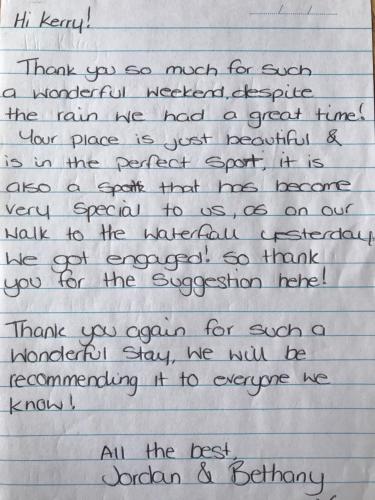 Hi Kerry!
Thank you so much for such
a wonderful weekend, despite
the rain we had a great time!
Your place is just beautiful &
is in the perfect Sport, it is
also a spott that has become
very special to us, as on our
walk to the waterfall yesterday,
we got engaged! So thank
you for the suggestion hehe!
Thank you again for such a
wonderful stay, we will be
recommending it to everyone we
know!
All the best,
Jordan & Bethany